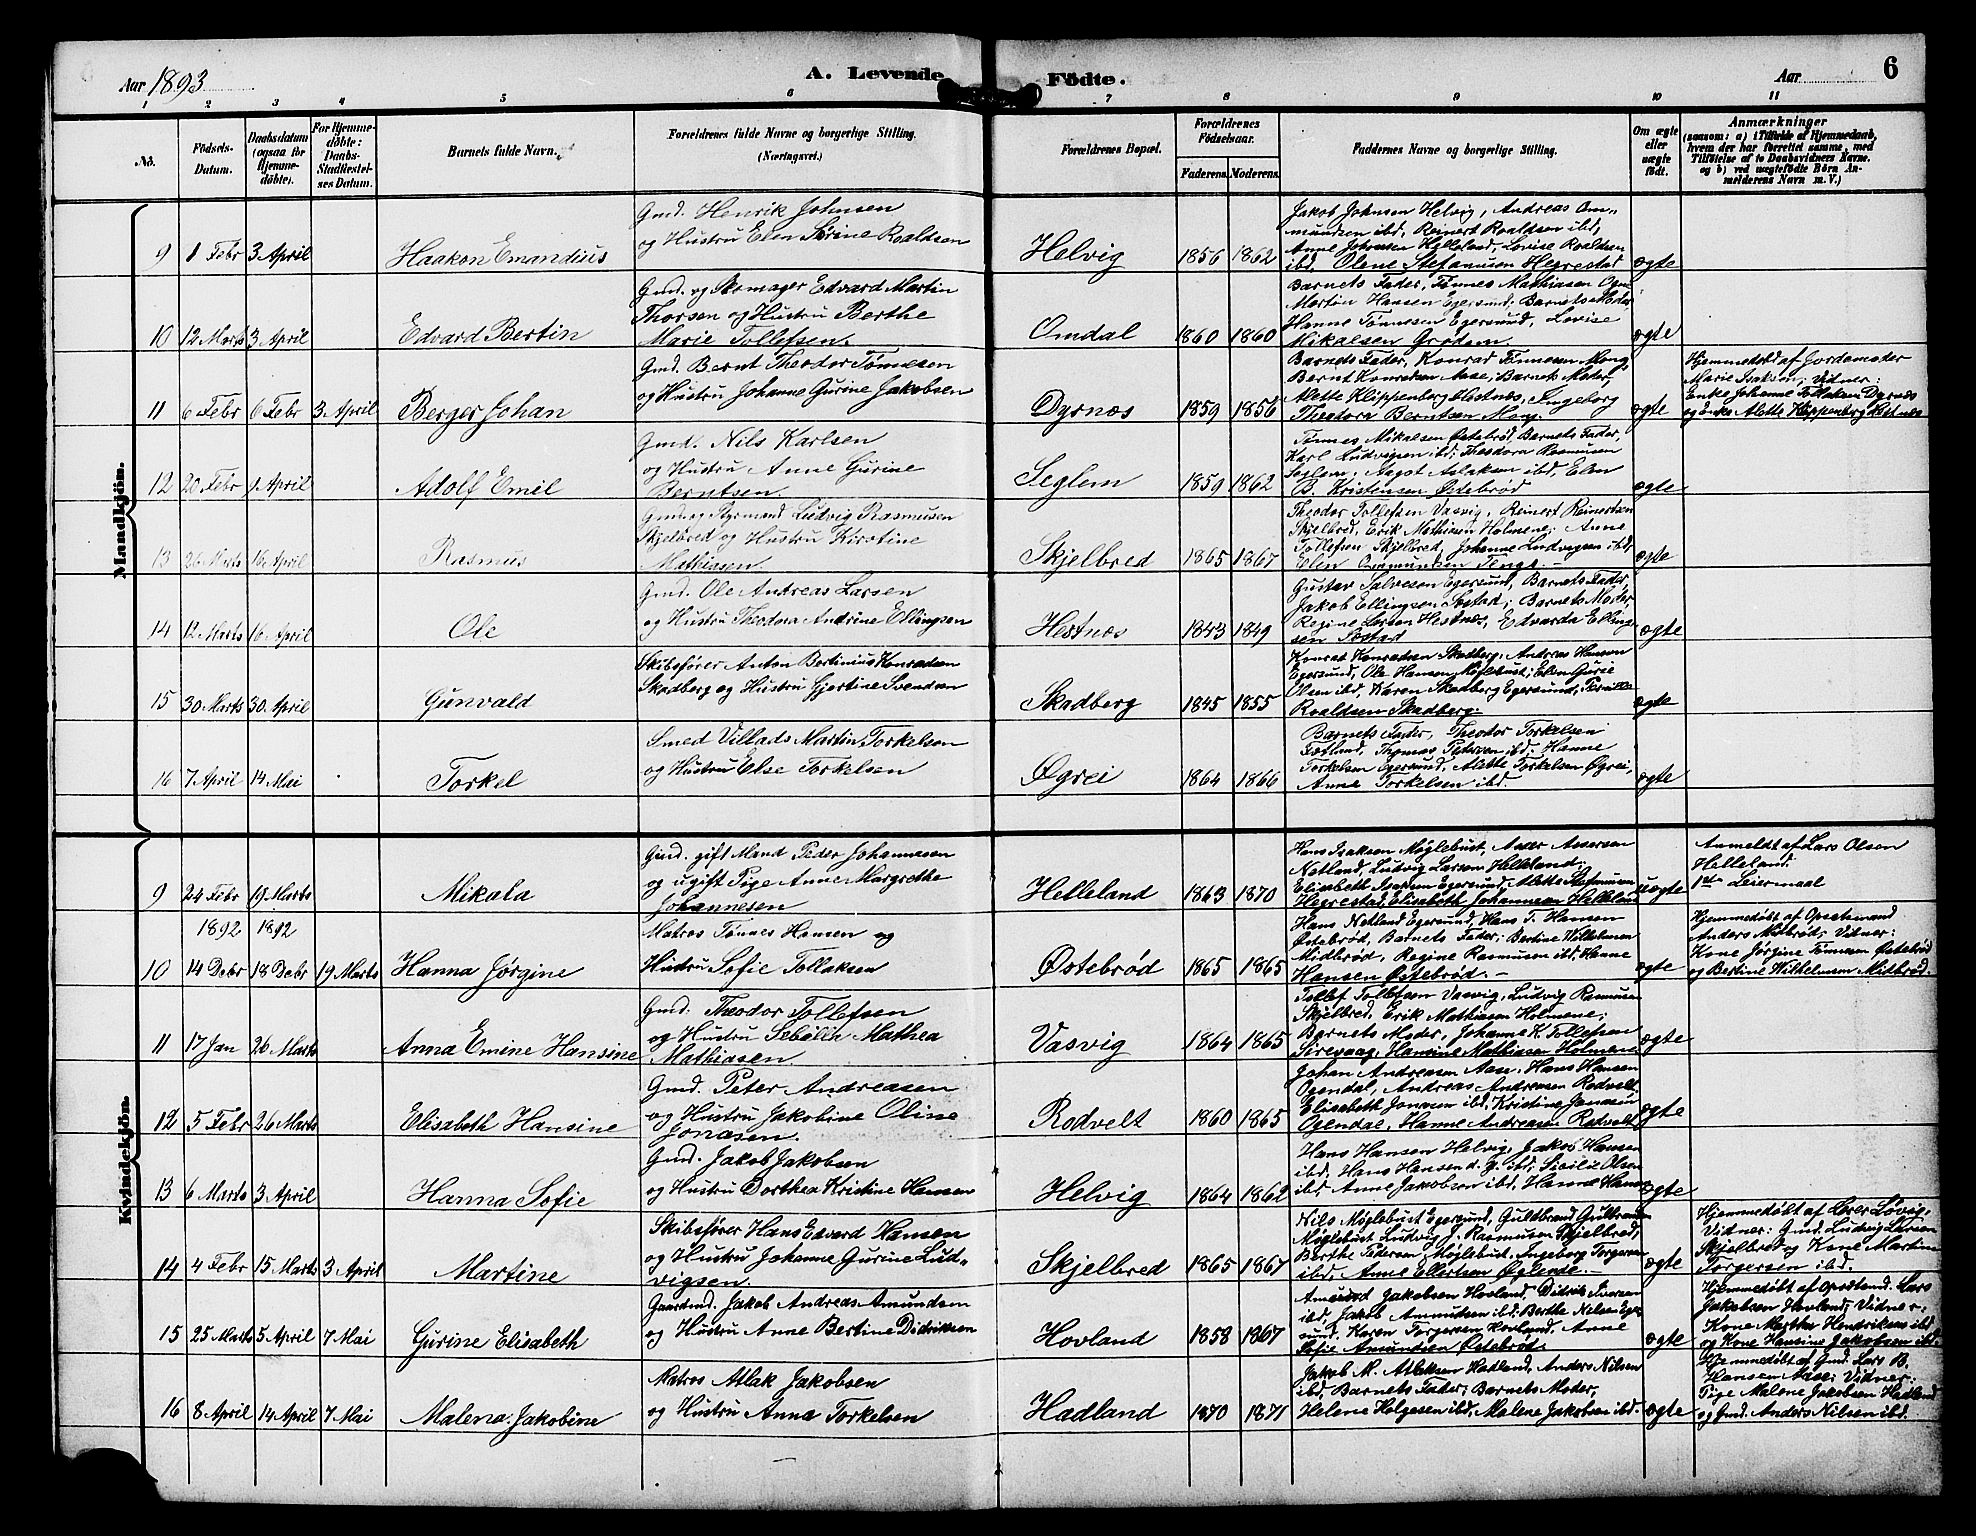 Aar 1893
A. Levende Fødte.
Aar 6
1 2 3 4 5 6 7 8 9 10 11
No.
Fødsels-Datum.
Daabsdatum (ogsaa for Hjemme-døbte).
For Hjemme-døbte: Daabs-Stadfæstel-ses Datum.
Barnets fulde Navn.
Forældrenes fulde Navne og borgerlige Stilling. (Næringsvei.)
Forældrenes Bopæl.
Forældrenes Fødselsaar.
Faderens. Moderens.
Faddernes Navne og borgerlige Stilling.
Om ægte eller uægte født.
Anmærkninger (saasom: a) i Tilfælde af Hjemmedaab, hvem der har forrettet samme, med Tilføielse af to Daabsvidners Navne. og b) ved uægtefødte Børn An-melderens Navn m. V.)
Mandkjön.
9 1 Febr 3 April Haakon Emandius
Gmd. Henrik Johnsen
og Hustru Elen Sørine Roaldsen
Helvig 1856 1862
Jakob Johnsen Helvig, Andreas Om-
mundsen ibd, Reinert Roaldsen ibd,
Anne Johnsen Helleland, Lovise Roaldsen
ibd, Olene Stefanusen Hegrestad
ægte
10 12 Marts 3 April Edvard Bertin
Gmd. og Skomager Edvard Martin
Thorsen og Hustru Berthe
Marie Tollefsen.
Omdal 1860 1860
Barnets Fader, Tønnes Mathiasen
Martin Hansen Egersund, Barnets Moder,
Hanne Tønnesen Egersund, Lovise
Mikalsen Grødem
ægte
11 6 Febr 6 Febr 3 April Berger Johan
Gmd. Bernt Theodor Tønnesen
og Hustru Johanne Gurine Jakobsen
Dyrnæs 1859 1856
Barnets Fader, Konrad Tønnesen Mong
Bernt Konradsen Aase, Barnets Moder,
Alette Klippenberg Hestnæs, Ingeborg
Theodora Berntsen Mong
ægte
Hjemmedøbt af Jordemoder
Marie Isaksen; Vidner:
Enke Johanne Tollaksen Dyrnæs
og Enke Alette Klippenberg Hestnæs
12 20 Febr 9 April Adolf Emil
Gmd. Nils Karlsen
og Hustru Anne Gurine
Berntsen.
Seglem 1859 1862
Tønnes Mikalsen Østebrød, Barnets Fader,
Karl Ludvigsen ibd, Theodora Rasmusen
Seglem, Aagot Aslaksen ibd, Elen
B. Kristensen Østebrød
ægte
13 26 Marts 16 April Rasmus
Gmd. og Styrmand Ludvig Rasmusen
Skjelbred og Hustru Kirstine
Mathiasen.
Skjelbred 1865 1867
Theodor Tollefsen Vasvig, Reinert Reinertsen
Skjelbred, Erik Mathiasen Holmene; Anne
Tollefsen Skjelbred, Johanne Ludvigsen ibd,
Elin Ommundsen Tengs. –
ægte
14 12 Marts 16 April Ole
Gmd. Ole Andreas Larsen
og Hustru Theodora Andrine Ellingsen
Hestnæs 1843 1849
Gustav Salvesen Egersund, Barnets Fader,
Jakob Ellingsen Søstad; Barnets Moder,
Regine Larsen Hestnæs, Edvarda Elling-
sen Søstad
ægte
15 30 Marts 30 April Gunvald
Skibsfører Anton Bertinius Konradsen
Skadberg og Hustru Gjertine Svendsen
Skadberg 1845 1855
Konrad Konradsen Skadberg, Andreas Hansen
Egersund, Ole Hansen Røglebust, Elen Gurie
Olsen ibd, Karen Skadberg Egersund, Pernille
Roaldsen Skadberg.
ægte
16 7 April 14 Mai Torkel
Smed Villads Martin Torkelsen
og Hustru Else Torkelsen
Øgrei 1864 1866
Barnets Fader, Theodor Torkelsen
Fotland, Thomas Petersen ibd. Hanne
Torkelsen Egersund, Alette Torkelsen Øgrei,
Anne Torkelsen ibd.
ægte
Kvindekjön.
9 24 Febr 19 Marts Mikala
Gmd. gift Mand Peder Johannesen
og ugift Pige Anne Margrethe
Johannesen
Helleland 1863 1870
Hans Isaksen Møglebust, Andersen
Netland, Ludvig Larsen Helleland;
Elisabeth Isaksen Egersund, Alette Stefanusen
Hegrestad, Elisabeth Johannesen Helleland
uægte
Anmeldt af Lars Olsen
Helleland.
1ste Leiermaal
1892 1892
10 14 Debr 18 Debr 19 Marts Hanna Jørgine
Matros Tønnes Hansen og
Hustru Sofie Tollaksen
Østebrød 1865 1865
Hans Netland Egersund, Hans T. Hansen
Østebrød, Barnets Fader; Bertine Wilhelmsen
Midbrød, Regine Rasmusen ibd, Hanne
Hansen Østebrød. –
ægte
Hjemmedøbt af Opsetsmand
Anders Midbrød; Vidner:
Kone Jørgine Tønnesen Østebrød
og Bertine Wilhelmsen Midbrød.
11 17 Jan 26 Marts Anna Emine Hansine
Gmd. Theodor Tollefsen
og Hustru Sebille Mathea
Mathiasen.
Vasvig 1864 1865
Tollef Tollefsen Vasvig, Ludvig Rasmusen
Skjelbred, Erik Mathiasen Holmene;
Barnets Moder, Johanne K. Tollefsen
Sirevaag, Hansine Mathiasen Holmene
ægte
12 5 Febr 26 Marts Elisabeth Hansine
Gmd. Peter Andreasen
og Hustru Jakobine Oline
Jonasen.
Rodvelt 1860 1865
Johan Andreasen Aase, Hans Hansen
Ogendal, Andreas Andreasen Rodvelt
Elisabeth Jonasen ibd, Kristine Jonassen
Ogendal, Hanne Andreasen Rodvelt
ægte
13 6 Marts 3 April Hanna Sofie
Gmd. Jakob Jakobsen
og Hustru Dorthea Kristine Hansen
Helvig 1864 1862
Hans Hansen Helvig, Jakob Hansen
ibd, Hans Hansen d. y. ibd; Sibille Olsen
ibd, Anne Jakobsen ibd, Hanne Hansen
ægte
14 4 Febr 15 Marts 3 April Martine
Skibsfører Hans Edvard Hansen
og Hustru Johanne Gurine Lud-
vigsen.
Skjelbred 1865 1867
Nils Møglebust Egersund, Guldbrand
Møglebust, Ludvig J. Rasmusen Skjelbred,
Berthe Pedersen Møglebust, Ingeborg Torgersen
ibd, Anne Ellertsen Øglende. –
ægte
Hjemmedøbt af Lærer Løvig,
Vidner: Gmd. Ludvig Larsen
Skjelbred og Kone Martine
Torgersen ibd.
15 25 Marts 5 April 7 Mai Gurine Elisabeth
Gaardmd. Jakob Andreas Amundsen
og Hustru Anne Bertine Didriksen
Hovland 1858 1867
Amund Jakobsen Hovland, Didrik Iversen
ibd, Jakob Amundsen ibd. Berthe Nilsen Eger-
sund, Karen Torgersen Hovland, Anne
Sofie Amundsen Østebrød.
ægte
Hjemmedøbt af Opsetsmd. Lars
Jakobsen Hovland; Vidner:
Kone Marthe Hendriksen ibd
og Kone Hansine Jakobsen ibd.
16 8 April 14 April 7 Mai Malena Jakobine
Matros Atlak Jakobsen
og Hustru Anna Torkelsen
Hadland 1870 1871
Jakob M. Atlaksen Hadland, Anders Nilsen
ibd, Barnets Fader; Barnets Moder,
Helene Helgesen ibd, Malene Jakobsen ibd.
ægte
Hjemmedøbt af Gmd. Lars B.
Hansen Aase; Vidner:
Pige Malene Jakobsen Hadland
og Gmd. Anders Nilsen ibd.